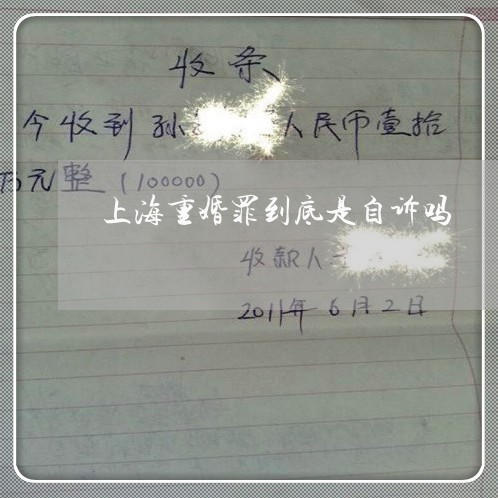 收条
今收到孙人民币壹拾
万元整(100000)
上海重婚罪到底是自诉吗
收款人
2011年6月2日